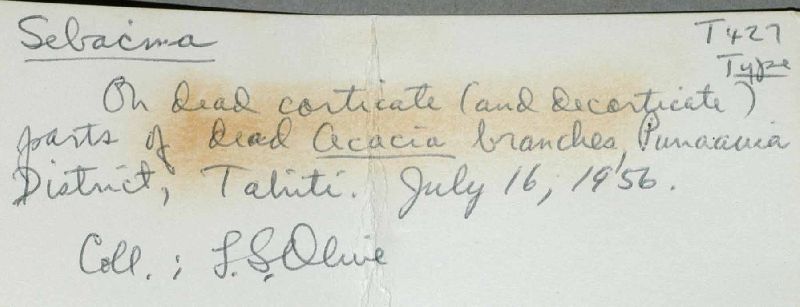 Sebacina
T427
Type
On dead corticate (and decorticate)
parts of dead Acacia branches, Punaauia
District, Tahiti. July 16, 1956.
Coll.: L.S. Olive